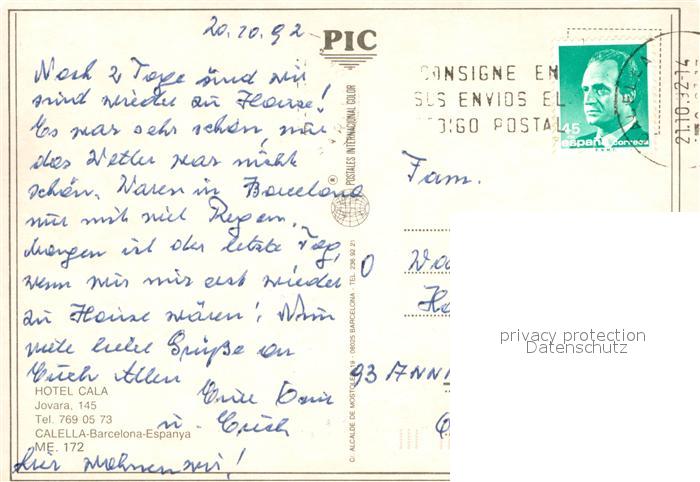 20.10.92
PIC
Noch 2 Tage sind wir
sind wieder zu Hause!
Es war sehr schön, nur
das Wetter war nicht
schön. Waren in Barcelona
nur mit viel Regen.
Morgen ist der letzte Tag,
wenn wir nur erst wieder
zu Hause wären! Nun
viele liebe Grüße an
Euch Allen
Eure
u. Erich
HOTEL CALA
Jovara, 145
Tel. 769 05 73
CALELLA-Barcelona-Espanya
ME. 172
hier wohnen wir!
POSTALES INTERNACIONAL COLOR
®
C/. ALCALDE DE MOSTOLES, 19 - 08025 BARCELONA - TEL. 236 92 21
CONSIGNE EN
SUS ENVIOS EL
CODIGO POSTAL
45
españa correos
21.10.92-14
Fam.
93 ANN
privacy protection
Datenschutz